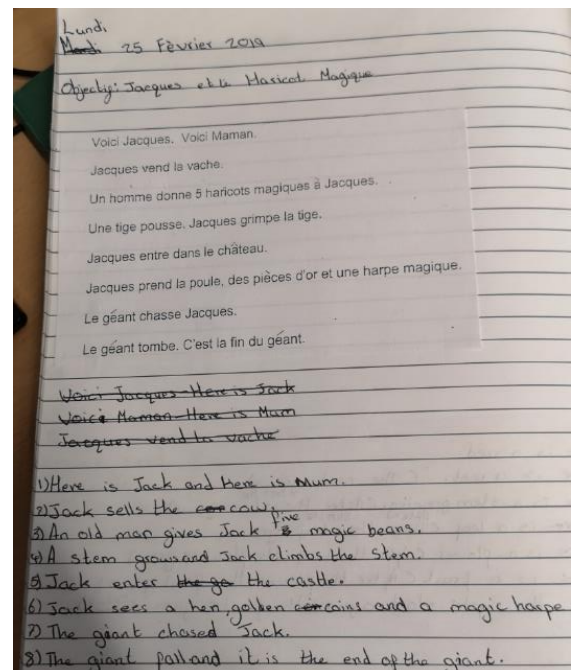 Lundi
Mardi 25 Fèvrier 2019
Objectif: Jacques et le Haricot Magique
Voici Jacques. Voici Maman.
Jacques vend la vache.
Un homme donne 5 haricots magiques à Jacques.
Une tige pousse. Jacques grimpe la tige.
Jacques entre dans le château.
Jacques prend la poule, des pièces d'or et une harpe magique.
Le géant chasse Jacques.
Le géant tombe. C'est la fin du géant.
Voici Jacques-Here is Jack
Voici Maman-Here is Mum
Jacques vend la vache
1) Here is Jack and here is Mum.
2) Jack sells the cow.
3) An old man gives Jack five magic beans.
4) A stem grows and Jack climbs the stem.
5) Jack enter the go the castle.
6) Jack sees a hen, golden coins and a magic harpe
7) The giant chased Jack.
8) The giant fall and it is the end of the giant.